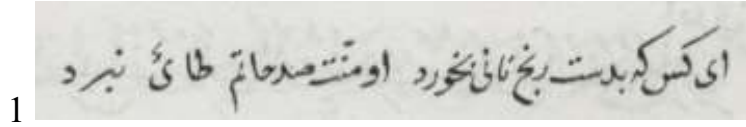 ای کس که بدست رنج نانی بخورد او منّت صد حاتم طائ نبرد
1